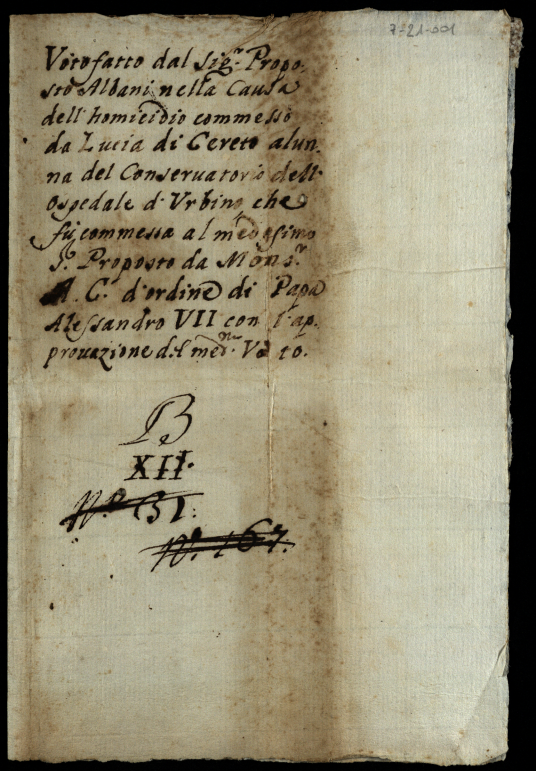 7-21-001
Voto fatto dal Sig.r Propo,
sto Albani nella Causa
dell'homicidio commesso
da Lucia di Cereto alun,
na del Conseruatorio dell'
Ospedale d'Vrbino che
fù commessa al medesimo
S.r Proposto da Mons.r
A. C. d'ordine di Papa
Alessandro VII con l'ap,
prouazione del med.mo Voto.
B
XII.
N.o 131.
N. 167.